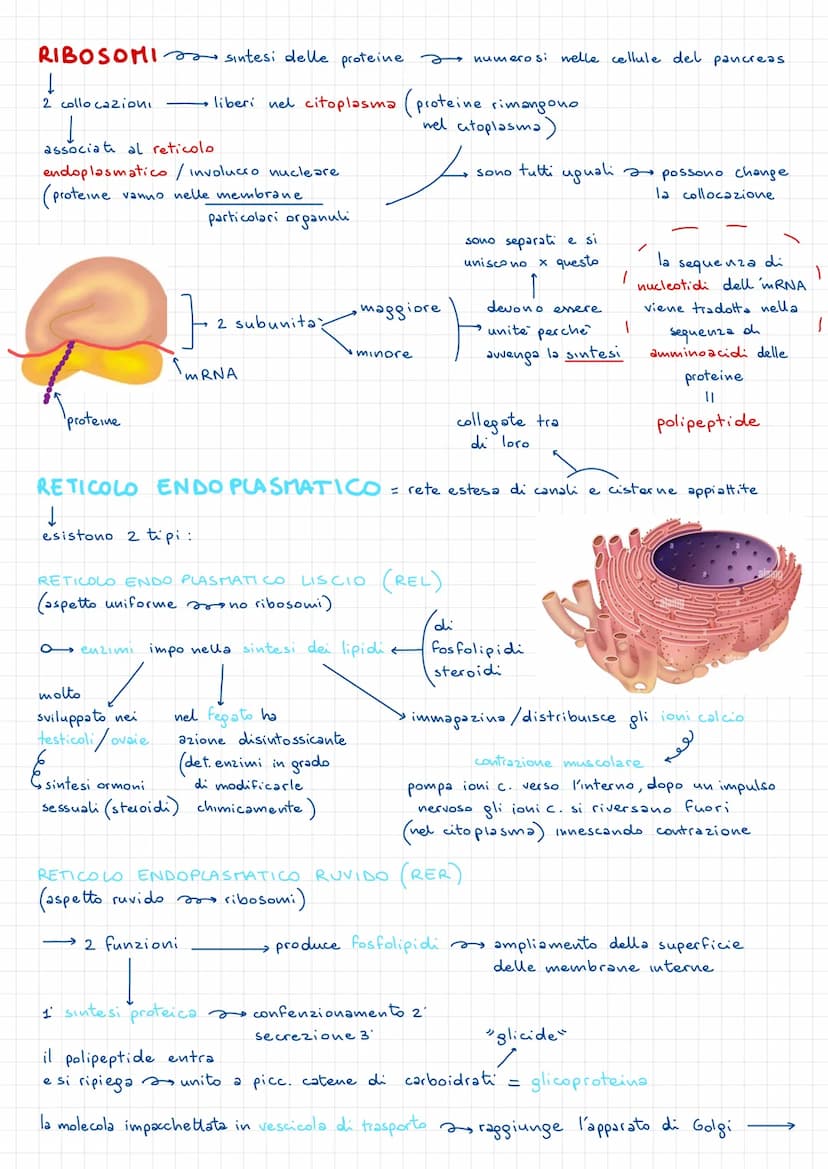 RIBOSOMI → sintesi delle proteine → numerosi nelle cellule del pancreas
2 collocazioni → liberi nel citoplasma (proteine rimangono
nel citoplasma)
associati al reticolo
endoplasmatico / involucro nucleare
(proteine vanno nelle membrane
particolari organuli
sono tutti uguali → possono change
la collocazione
sono separati e si
uniscono x questo
2 subunità
maggiore
minore
devono essere
unite perché
avvenga la sintesi
la sequenza di
nucleotidi dell'mRNA
viene tradotta nella
sequenza di
amminoacidi delle
proteine
=
polipeptide
mRNA
proteine
collegate tra
di loro
RETICOLO ENDOPLASMATICO = rete estesa di canali e cisterne appiattite
esistono 2 tipi:
RETICOLO ENDOPLASMATICO LISCIO (REL)
(aspetto uniforme → no ribosomi)
→ enzimi impo nella sintesi dei lipidi ← (di
fosfolipidi
steroidi
a
a
a
alamy
alamy
molto
sviluppato nei
testicoli/ovaie
sintesi ormoni
sessuali (steroidi)
nel fegato ha
azione disintossicante
(det. enzimi in grado
di modificarle
chimicamente)
immagazina/distribuisce gli ioni calcio
contrazione muscolare
pompa ioni c. verso l'interno, dopo un impulso
nervoso gli ioni c. si riversano fuori
(nel citoplasma) innescando contrazione
RETICOLO ENDOPLASMATICO RUVIDO (RER)
(aspetto ruvido → ribosomi)
→ 2 funzioni → produce fosfolipidi → ampliamento della superficie
delle membrane interne
1° sintesi proteica → confenzionamento 2°
secrezione 3°
"glicide"
il polipeptide entra
e si ripiega → unito a picc. catene di carboidrati = glicoproteina
la molecola impacchettata in vescicola di trasporto → raggiunge l'apparato di Golgi →